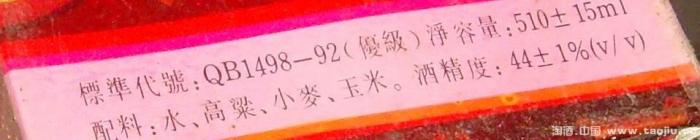 標準代號:QB1498-92(優級)淨容量:510±15ml
配料:水、高粱、小麥、玉米。酒精度:44±1%(v/v)
淘酒.中国 www.taojiu